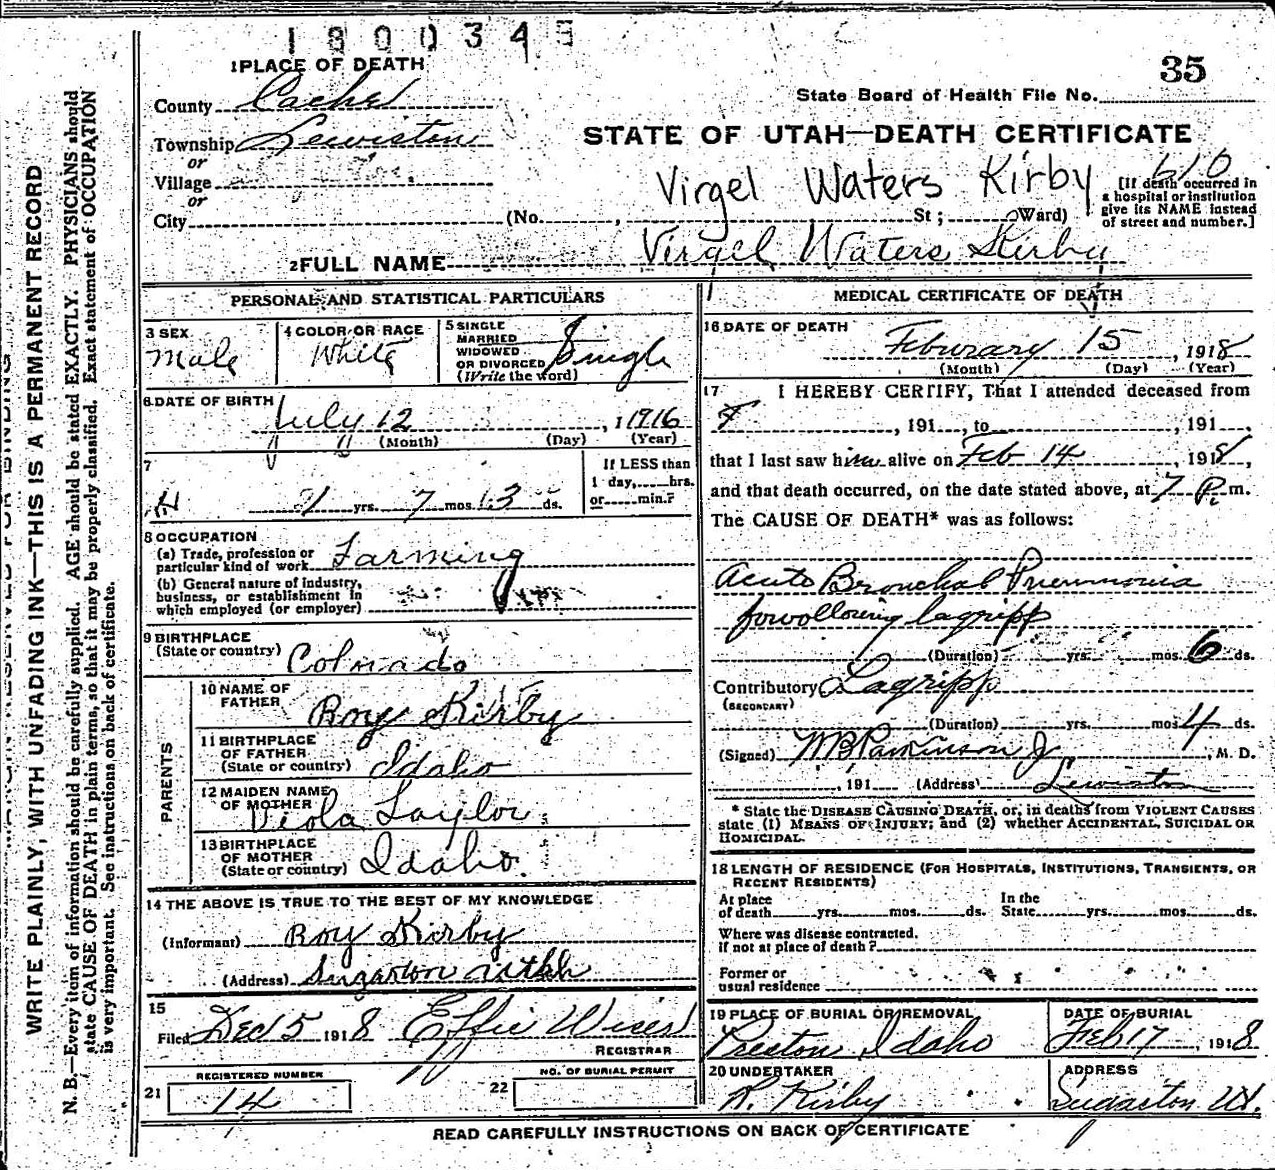 1800343
35
1 PLACE OF DEATH
State Board of Health File No.
County Cache
STATE OF UTAH—DEATH CERTIFICATE
Township Lewiston
or
Village
or
City
Virgel Waters Kirby 610
(No. , St; Ward)
[If death occurred in
a hospital or institution
give its NAME instead
of street and number.]
2 FULL NAME Virgel Waters Kirby
PERSONAL AND STATISTICAL PARTICULARS
3 SEX
Male
4 COLOR OR RACE
White
5 SINGLE
MARRIED
WIDOWED
OR DIVORCED
(Write the word)
Single
6 DATE OF BIRTH
July 12, 1916
(Month) (Day) (Year)
7
1 yrs. 7 mos. 3 ds.
If LESS than
1 day, hrs.
or min.?
8 OCCUPATION
(a) Trade, profession or
particular kind of work Farming
(b) General nature of industry,
business, or establishment in
which employed (or employer)
9 BIRTHPLACE
(State or country) Colorado
PARENTS
10 NAME OF
FATHER Roy Kirby
11 BIRTHPLACE
OF FATHER
(State or country) Idaho
12 MAIDEN NAME
OF MOTHER Viola Taylor
13 BIRTHPLACE
OF MOTHER
(State or country) Idaho.
14 THE ABOVE IS TRUE TO THE BEST OF MY KNOWLEDGE
(Informant) Roy Kirby
(Address)
15
Filed Dec 5 1918 Effie Wiser
REGISTRAR
21
REGISTERED NUMBER
14
22
NO. OF BURIAL PERMIT
MEDICAL CERTIFICATE OF DEATH
16 DATE OF DEATH
Feburary 15, 1918
(Month) (Day) (Year)
17 I HEREBY CERTIFY, That I attended deceased from
, 191 , to , 191 ,
that I last saw him alive on Feb 14, 1918,
and that death occurred, on the date stated above, at 7 P. m.
The CAUSE OF DEATH* was as follows:
Acute Bronchal Pneumonia
fowollowing lagripp
(Duration) yrs. mos. 6 ds.
Contributory Lagripp
(SECONDARY)
(Duration) yrs. mos 4 ds.
(Signed) WB Parkinson Jr, M. D.
, 191 (Address) Lewiston
* State the DISEASE CAUSING DEATH, or, in deaths from VIOLENT CAUSES
state (1) MEANS OF INJURY; and (2) whether ACCIDENTAL, SUICIDAL OR
HOMICIDAL.
18 LENGTH OF RESIDENCE (FOR HOSPITALS, INSTITUTIONS, TRANSIENTS, OR
RECENT RESIDENTS)
At place
of death yrs. mos. ds.
In the
State yrs. mos. ds.
Where was disease contracted,
if not at place of death?
Former or
usual residence
19 PLACE OF BURIAL OR REMOVAL
Preston Idaho
DATE OF BURIAL
Feb 17, 1918
20 UNDERTAKER
R. Kirby
ADDRESS
READ CAREFULLY INSTRUCTIONS ON BACK OF CERTIFICATE
WRITE PLAINLY, WITH UNFADING INK—THIS IS A PERMANENT RECORD
N. B.—Every item of information should be carefully supplied. AGE should be stated EXACTLY. PHYSICIANS should
state CAUSE OF DEATH in plain terms, so that it may be properly classified. Exact statement of OCCUPATION
is very important. See instructions on back of certificate.